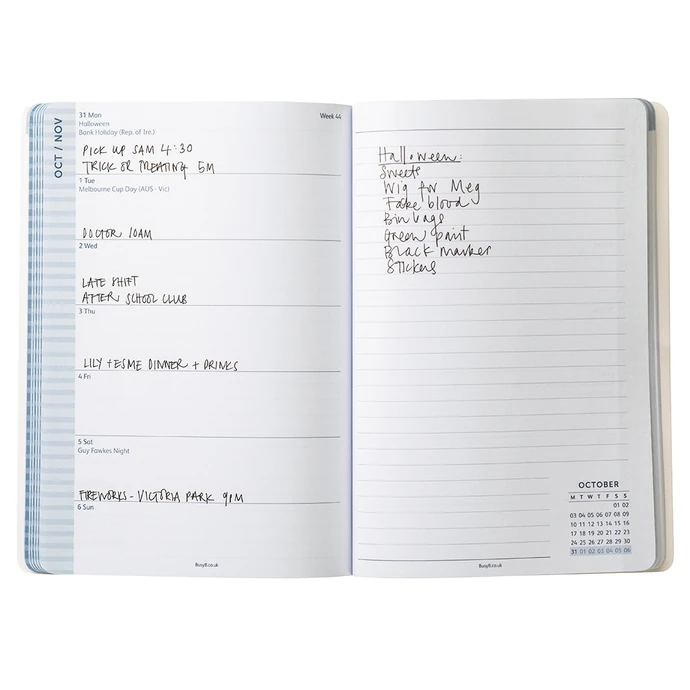 OCT / NOV
31 Mon
Week 44
Halloween
Bank Holiday (Rep. of Ire.)
PICK UP SAM 4:30
TRICK OR TREATING 5PM
1 Tue
Melbourne Cup Day (AUS - Vic)
DOCTOR 10AM
2 Wed
LATE SHIFT
AFTER SCHOOL CLUB
3 Thu
LILY + ESME DINNER + DRINKS
4 Fri
5 Sat
Guy Fawkes Night
FIREWORKS - VICTORIA PARK 9PM
6 Sun
BusyB.co.uk
Halloween:
Sweets
Wig for Meg
Fake blood
Bin bags
Green paint
Black marker
Stickers
OCTOBER
M T W T F S S
01 02
03 04 05 06 07 08 09
10 11 12 13 14 15 16
17 18 19 20 21 22 23
24 25 26 27 28 29 30
31 01 02 03 04 05 06
BusyB.co.uk